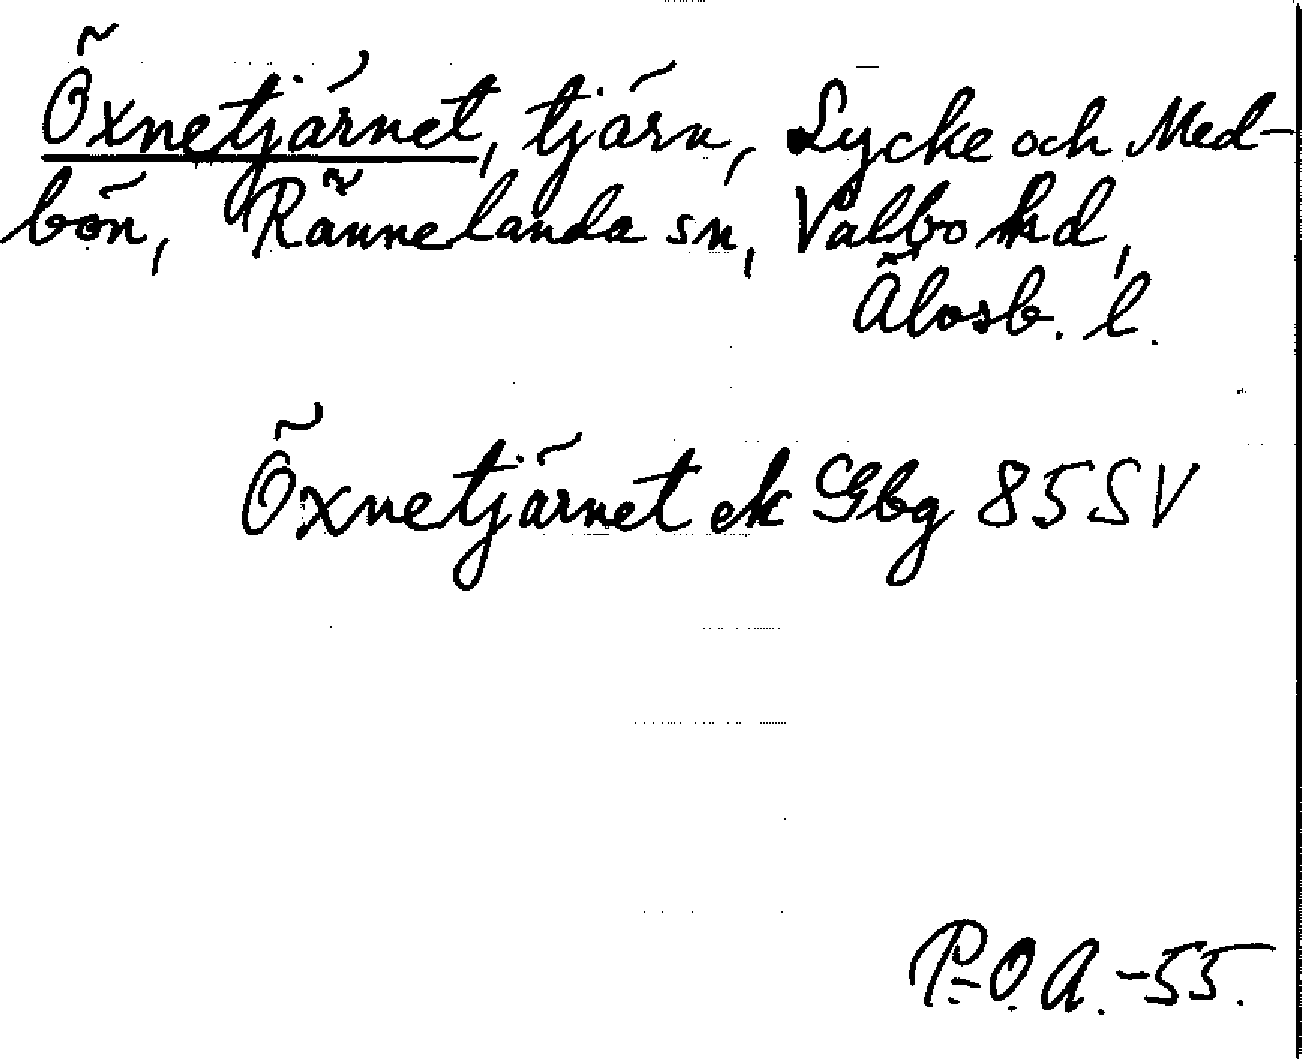 Öxnetjärnet, tjärn, Lycke och Med-
bön, Rännelanda sn, Valbo hd,
Älvsb. l.
Öxnetjärnet ek Gbg 85 SV
P.-O. A. -55.